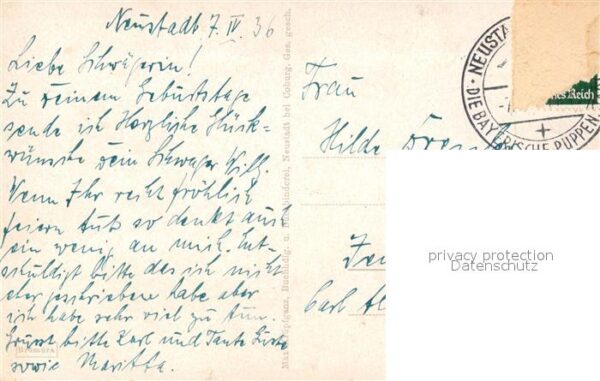 Neustadt 7. IV. 36
Liebe Schwägerin!
Zu Deinem Geburtstage
sende ich Herzliche Glück-
wünsche Dein Schwager Willy.
Wenn Ihr recht fröhlich
feiern tut so denkt auch
ein wenig an mich. Ent-
schuldigt bitte das ich nicht
eher geschrieben habe aber
ich habe sehr viel zu tun.
Grüsst bitte Karl und Tante
sowie Maritta.
Frau
Hilde
Carl
NEUSTA
DIE BAYERISCHE PUPPEN
Reich
Buchhdlg. u. Neustadt bei Coburg. Ges. gesch.
privacy protection
Datenschutz